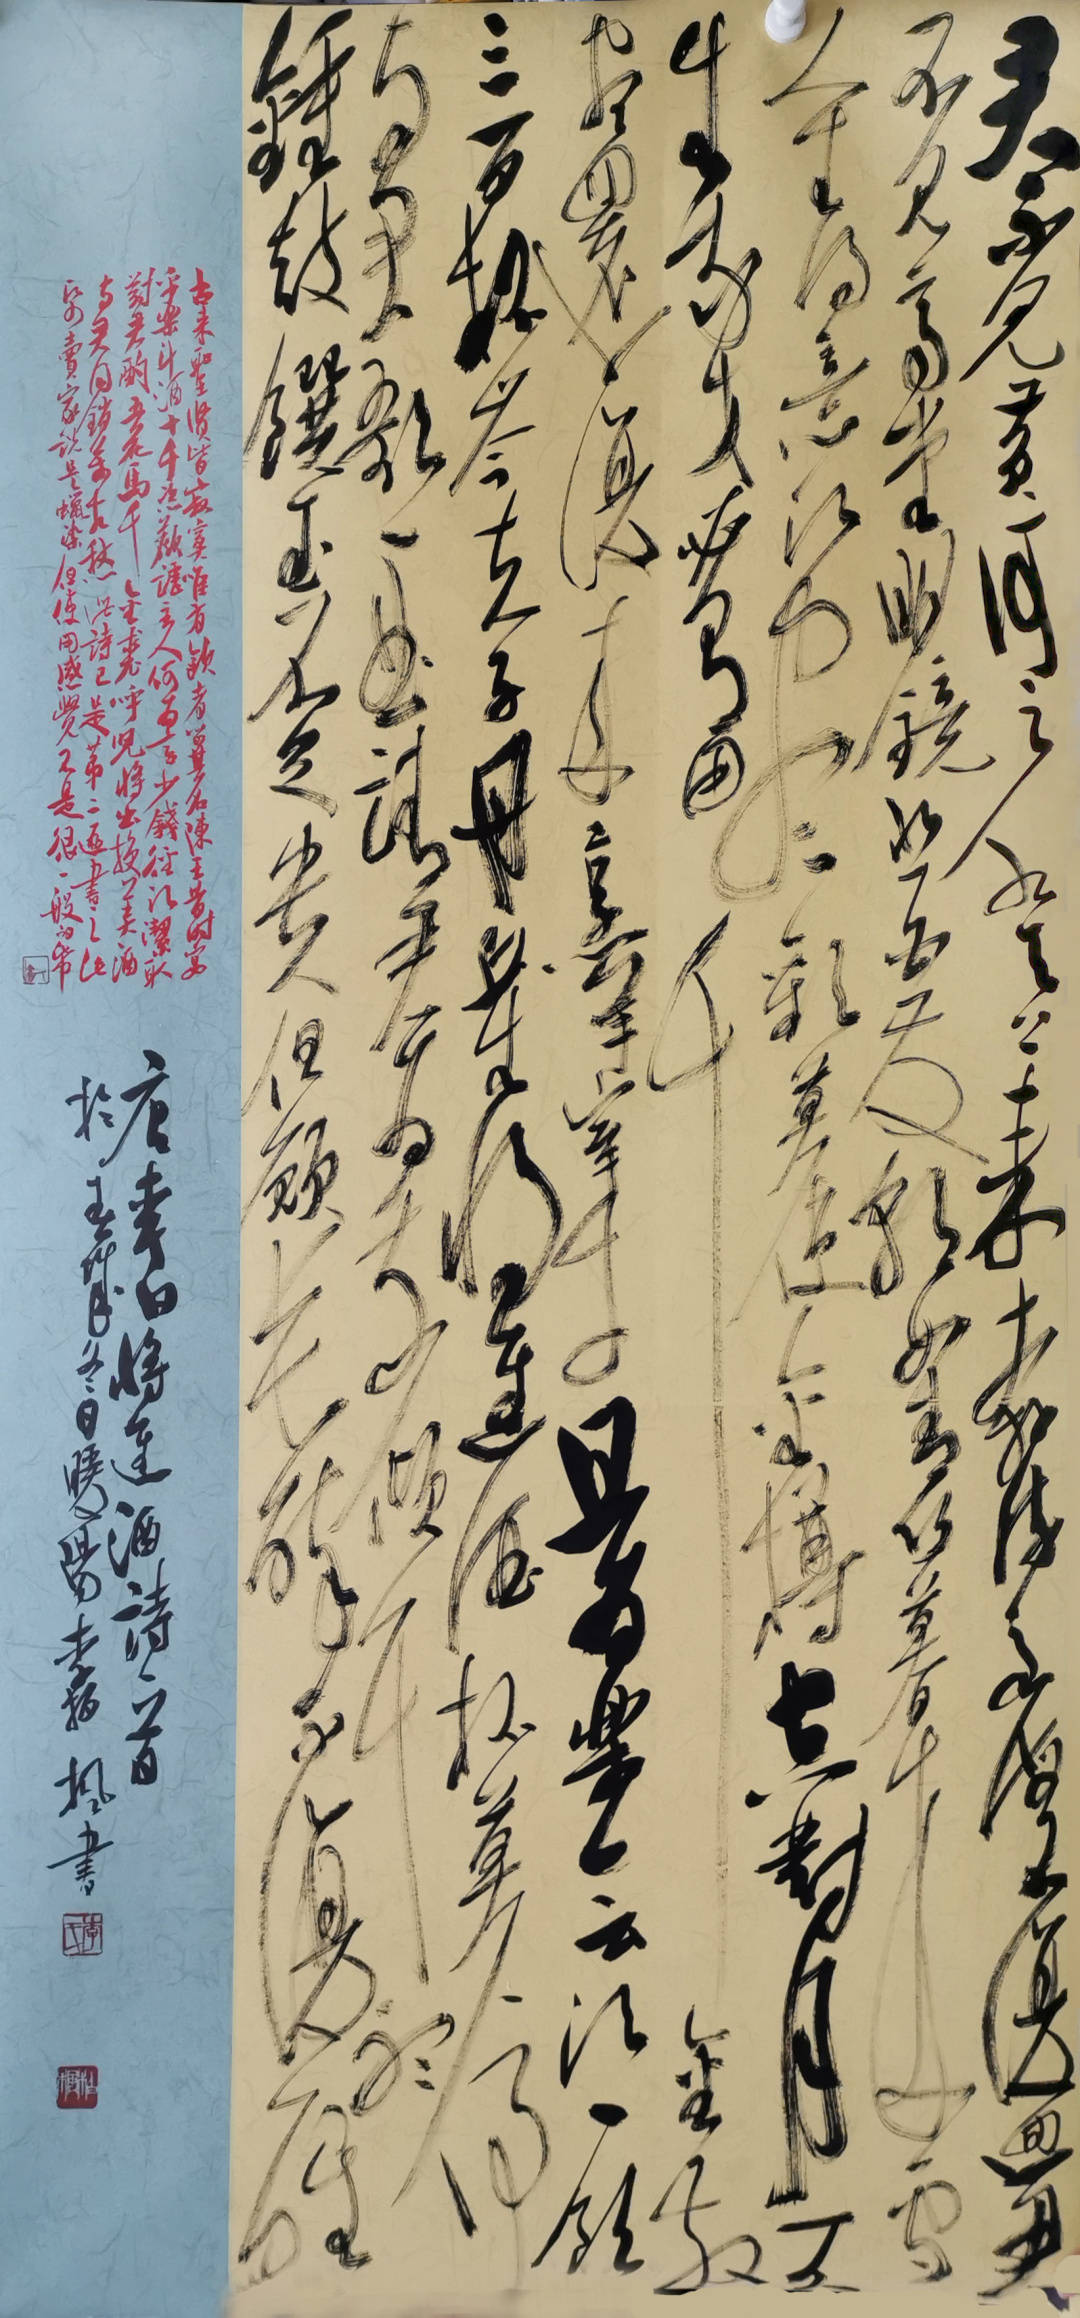 君不見黃河之水天上來奔流到海不復迴君
不見高堂明鏡悲白髮朝如青絲暮成雪
人生得意須盡歡莫使金樽空對月天
生我材必有用千金散
盡還復來烹羊宰牛且為樂會須一飲
三百杯岑夫子丹丘生將進酒杯莫停
與君歌一曲請君為我傾耳聽
鐘鼓饌玉不足貴但願長醉不復醒
古來聖賢皆寂寞唯有飲者其名陳王昔時宴
平樂斗酒十千恣歡謔主人何為言少錢徑須沽取
對君酌五花馬千金裘呼兒將出換美酒
與爾同銷萬古愁此詩已是第二遍書之此
紙賣家說是蠟染但使用感覺只是很一般的紙
唐李白將進酒詩一首
於冬日暖陽李楓書